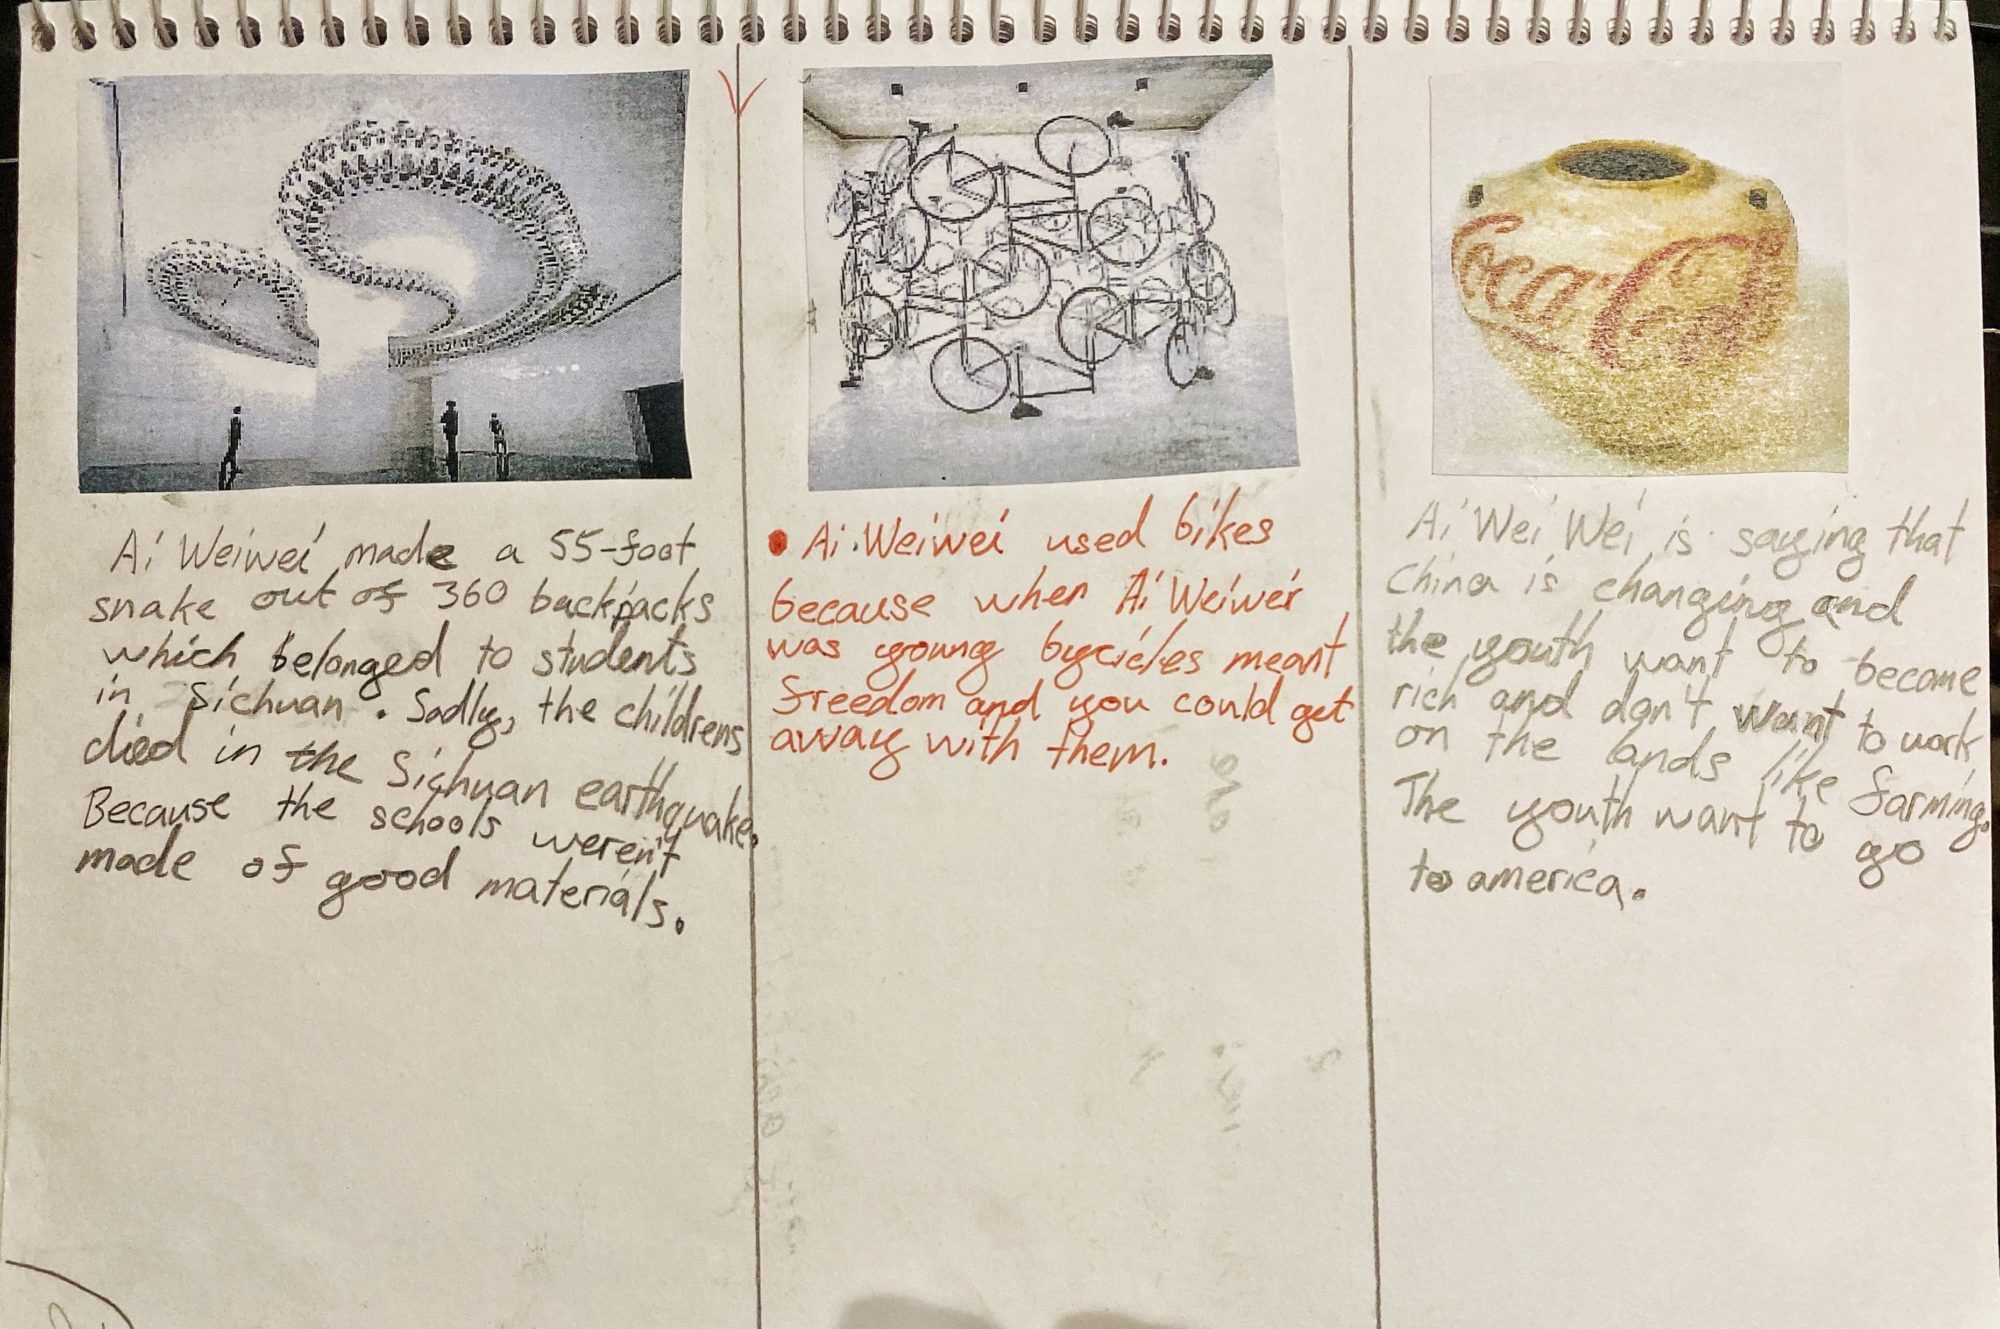 Coca-Co
Ai Weiwei made a 55-foot
snake out of 360 backpacks
which belonged to students
in Sichuan. Sadly, the childrens
died in the Sichuan earthquake.
Because the schools weren't
made of good materials.
• Ai.Weiwei used bikes
because when Ai Weiwei
was young bycicles meant
freedom and you could get
away with them.
Ai Wei Wei is saying that
China is changing and
the youth want to become
rich and don't want to work
on the lands like farming.
The youth want to go
to america.